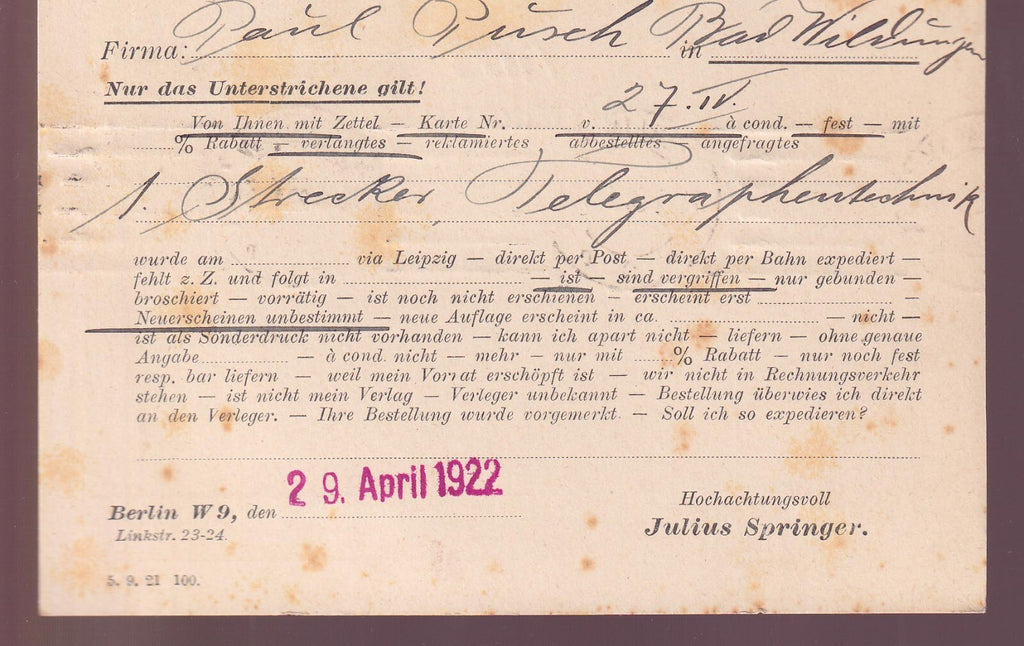 Firma: Paul Pusch in Bad Wildungen
Nur das Unterstrichene gilt!
Von Ihnen mit Zettel — Karte Nr. v. 27. IV. à cond. — fest — mit
% Rabatt — verlangtes — reklamiertes abbestelltes angefragtes
1. Strecker, Telegraphentechnik
wurde am via Leipzig — direkt per Post — direkt per Bahn expediert —
fehlt z. Z. und folgt in — ist — sind vergriffen — nur gebunden —
broschiert — vorrätig — ist noch nicht erschienen — erscheint erst —
Neuerscheinen unbestimmt — neue Auflage erscheint in ca. — nicht —
ist als Sonderdruck nicht vorhanden — kann ich apart nicht — liefern — ohne genaue
Angabe — à cond. nicht — mehr — nur mit % Rabatt — nur noch fest
resp. bar liefern — weil mein Vorrat erschöpft ist — wir nicht in Rechnungsverkehr
stehen — ist nicht mein Verlag — Verleger unbekannt — Bestellung überwies ich direkt
an den Verleger. — Ihre Bestellung wurde vorgemerkt. — Soll ich so expedieren?
29. April 1922
Berlin W 9, den
Linkstr. 23-24.
Hochachtungsvoll
Julius Springer.
5. 9. 21 100.